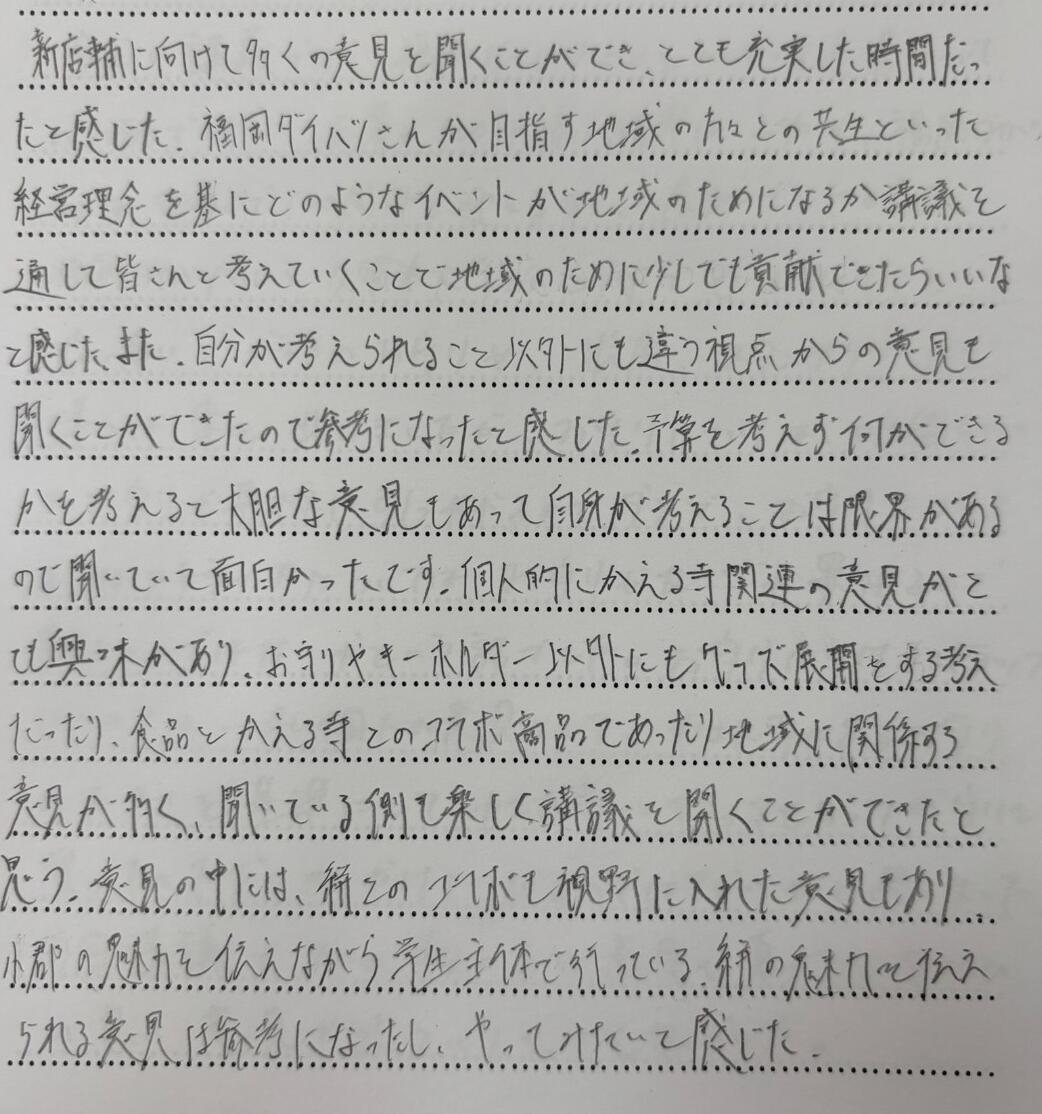 新店輔に向けて多くの意見を聞くことができ、とても充実した時間だっ
たと感じた。福岡ダイハツさんが目指す地域の方々との共生といった
経営理念を基にどのようなイベントが地域のためになるか講議を
通して皆さんと考えていくことで地域のために少しでも貢献できたらいいな
と感じた。また、自分が考えられること以外にも違う視点からの意見も
聞くことができたので参考になったと感じた。予算を考えず何ができる
かを考えると大胆な意見もあって自身が考えることは限界がある
ので聞いていて面白かったです。個人的にかえる寺関連の意見がと
ても興味があり、お守りやキーホルダー以外にもグッズ展開をする考え
だったり、食品とかえる寺とのコラボ商品であったり地域に関係する
意見が多く、聞いている側も楽しく講議を聞くことができたと
思う。意見の中には、絣とのコラボも視野に入れた意見もあり、
小郡の魅力を伝えながら学生主体で行っている、絣の魅力を伝え
られる意見は参考になったし、やってみたいと感じた。